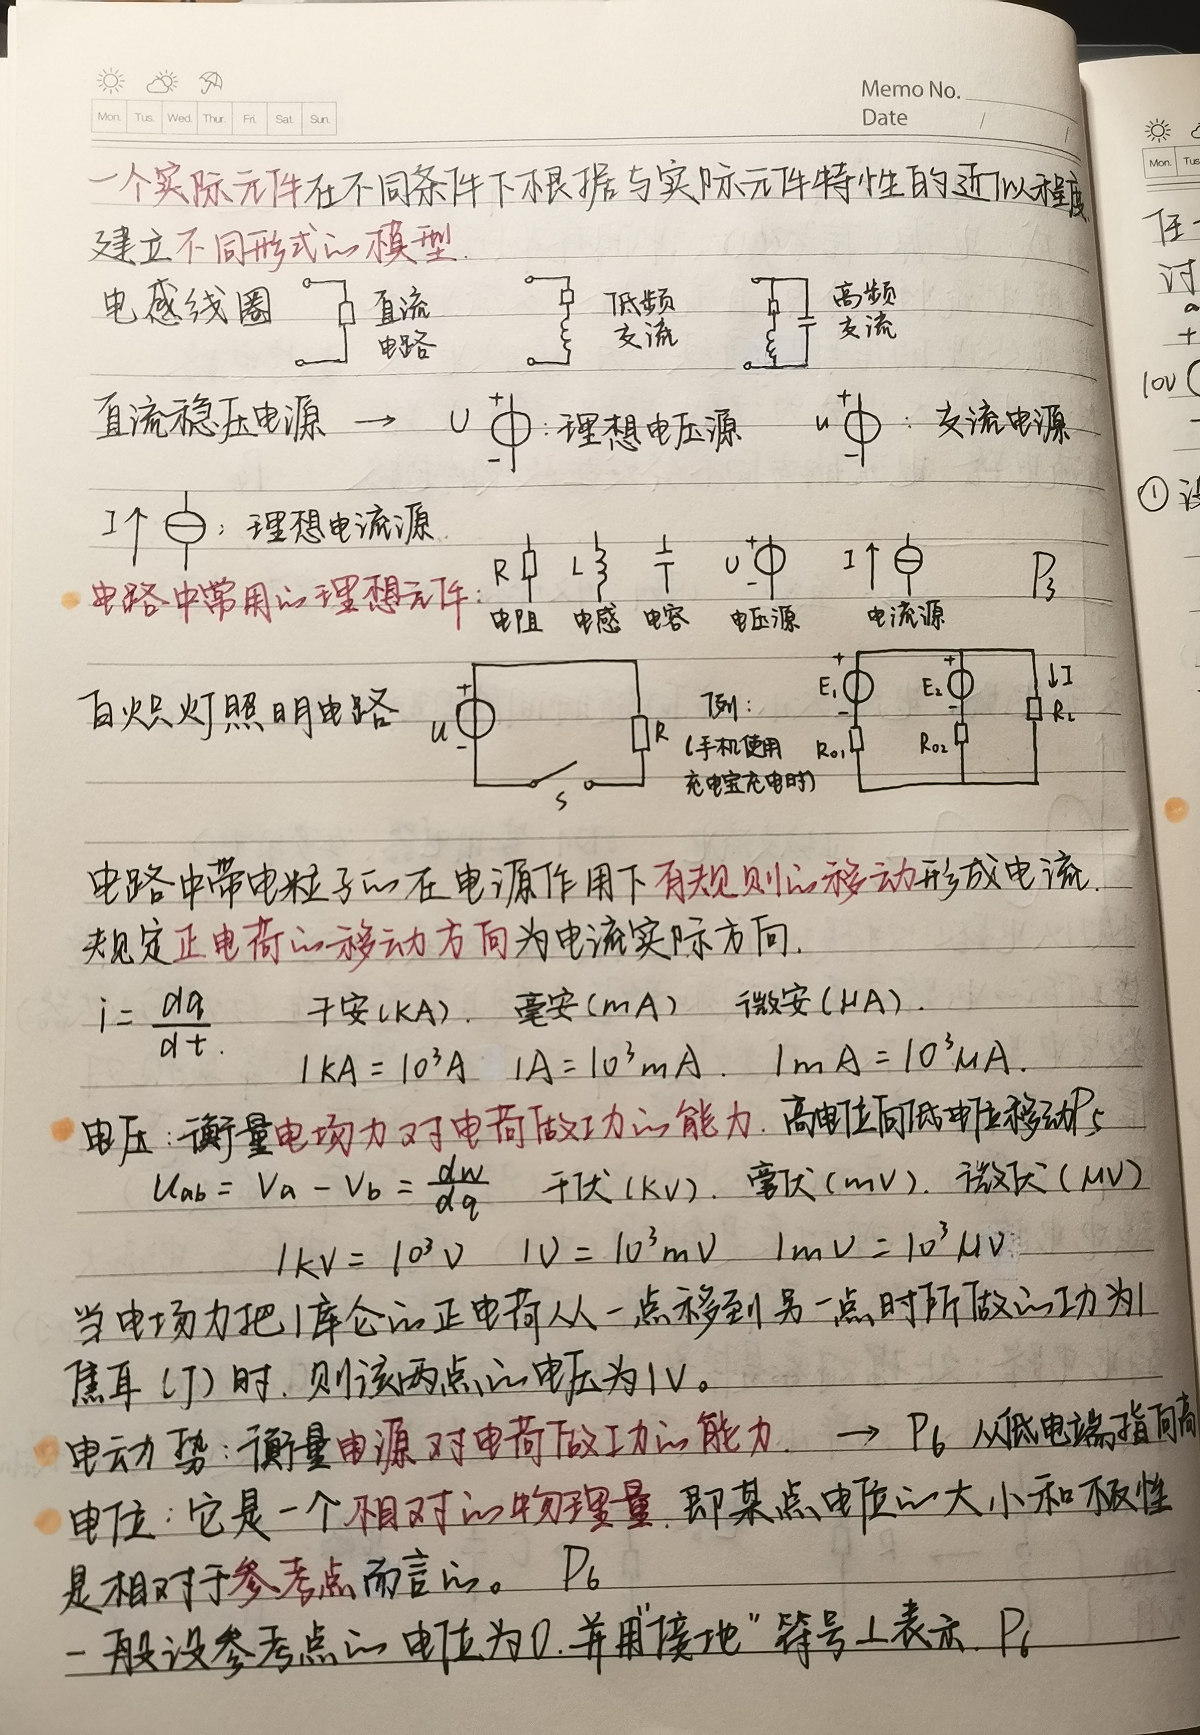 Memo No.
Date / /
Mon. Tus. Wed. Thur. Fri. Sat. Sun.
一个实际元件在不同条件下根据与实际元件特性的近似程度
建立不同形式的模型.
电感线圈 直流电路 低频交流 高频交流
直流稳压电源 → U + - : 理想电压源 u + - : 交流电源
I ↑ : 理想电流源
电路中常用的理想元件: R 电阻 L 电感 电容 U + - 电压源 I ↑ 电流源 P3
白炽灯照明电路 U + - R S 例: (手机使用充电宝充电时) E1 + - R01 E2 + - R02 ↓I RL
电路中带电粒子的在电源作用下有规则的移动形成电流.
规定正电荷的移动方向为电流实际方向.
i = dq/dt. 千安(KA). 毫安(mA) 微安(μA).
1kA = 10³A 1A = 10³mA. 1mA = 10³μA.
电压: 衡量电场力对电荷做功的能力. 高电位向低电位移动P5
Uab = Va - Vb = dw/dq 千伏(KV). 毫伏(mV). 微伏(μV)
1kV = 10³V 1V = 10³mV 1mV = 10³μV
当电场力把1库仑的正电荷从一点移到另一点时所做的功为1
焦耳(J)时. 则该两点的电压为1V。
电动势: 衡量电源对电荷做功的能力. → P6 从低电端指向高
电位: 它是一个相对的物理量. 即某点电位的大小和极性
是相对于参考点而言的。 P6
一般设参考点的电位为0. 并用"接地"符号⊥表示. P6
Mon. Tus
任一
讨
a
+
10V
①